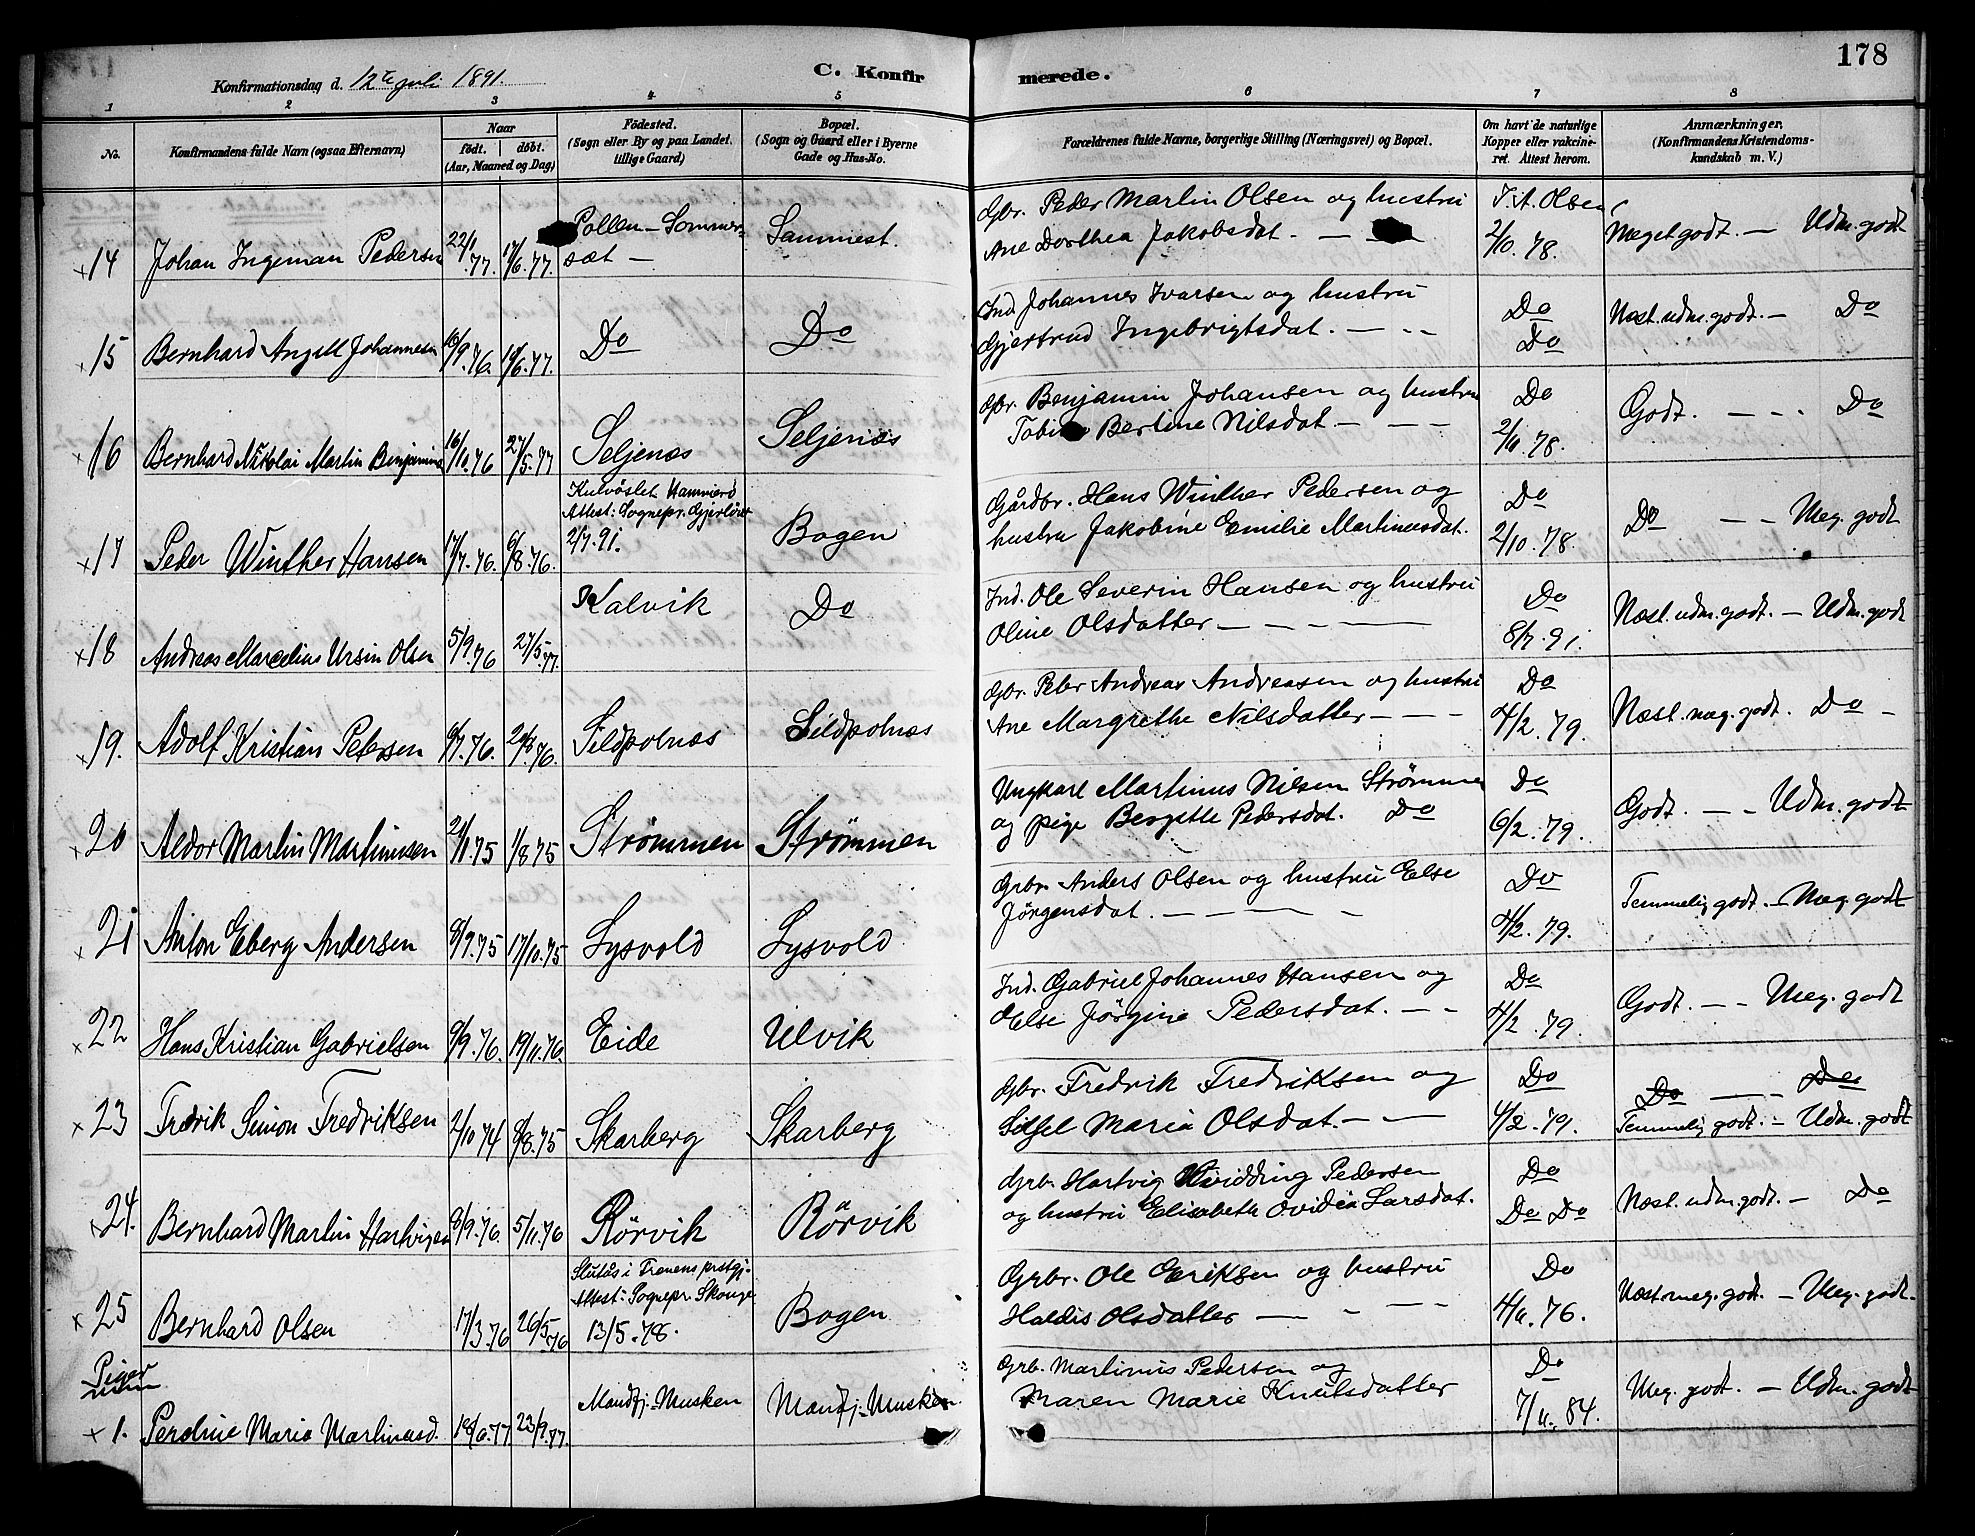 178
Konfirmationsdag d. 12te juli 1891.
C. Konfirmerede.
1 2 3 4 5 6 7 8
No. Konfirmandens fulde Navn (ogsaa Efternavn) Naar födt. döbt. (Aar, Maaned og Dag) Födested. (Sogn eller By og paa Landet tillige Gaard) Bopæl. (Sogn og Gaard eller i Byerne Gade og Hus-No. Forældrenes fulde Navne, borgerlige Stilling (Næringsvei) og Bopæl. Om havt de naturlige Kopper eller vakcineret. Attest herom. Anmærkninger. (Konfirmandens Kristendomskundskab m. V.)
x 14 Johan Ingeman Pedersen 22/1.77. 17/6.77. Pollen - Sommersæt - Sammest. Gbr. Peder Martin Olsen og hustru Ane Dorthea Jakobsdat. - J.A. Olsen 2/10.78. Meget godt. - Udm. godt
x 15 Bernhard Angell Johannesen 16/9.76. 17/6.77. Do Do Ind. Johannes Ivarsen og hustru Gjertrud Ingebrigtsdat. - - - Do Do Næst. udm. godt. - Do
x 16 Bernhard Nikolai Martin Benjamins 16/10.76 27/5.77 Seljenæs Seljenæs Gbr. Benjamin Johansen og hustru Berline Nilsdat - - - Do 2/11.78. Godt. - - - Do
x 17 Peder Winther Hansen 17/7.76. 6/8.76. Hammerö Attest: Sognepr. 2/7.91. Bogen Gårdbr. Hans Winther Pedersen og hustru Jakobine Emilie Martinusdat. Do 2/10.78. Do - - Meg. godt
x 18 Andreas Marcelius Ursin Olsen 5/9.76 27/5.77. Kalvik Do Ind. Ole Severin Hansen og hustru Oline Olsdatter - - - - Do 8/7.91. Næst. udm. godt. - Udm. godt
x 19. Adolf Kristian Petersen 6/7.76. 20/8.76. Sildpolnæs Sildpolnæs Gbr. Peter Andreas Andreasen og hustru Ane Margrethe Nilsdatter - - - Do 4/2.79. Næst. meg. godt. Do -
x 20 Aldor Martin Martinusen 21/1.75 1/8.75 Strømmen Strømmen Ungkarl Martinus Nilsen Strømmen og pige Bergitte Pedersdat. Do Do 6/2.79. Godt. - - Udm. godt
x 21 Anton Eberg Andersen 8/7.75 17/10.75 Lysvold Lysvold Grbr. Anders Olsen og hustru Else Jørgensdat. - - - - Do 4/2.79. Temmelig godt. - Meg. godt
x 22 Hans Kristian Gabrielsen 9/9.76. 19/11.76. Eide Ulvik Ind. Gabriel Johannes Hansen og Else Jørgine Pedersdat. - - Do 4/2.79. Godt. - - Meg. godt
x 23 Fredrik Simon Fredriksen 2/10.74 8/8.75 Skarberg Skarberg Gbr. Fredrik Fredriksen og Sissel Maria Olsdat. - - Do 4/2.79. Do - - Do Temmelig godt. - Udm. godt
x 24. Bernhard Martin Hartvigsen 8/9.76. 5/11.76 Rörvik Rörvik Grb. Hartvig Hvidding Pedersen og hustru Elisabeth Ovidia Larsdat. Do Do Do Næst. udm. godt. - Do
x 25 Bernhard Olsen 17/3.76 26/5.76 Slutås i Tranens prstgj. Attest: Sognepr. Skonge 13/5.78. Bogen Grbr. Ole Eriksen og hustru Haldis Olsdatter - - - - Do 4/11.76. Næst. meg. godt. - Meg. godt.
Piger
x 1. Perdine Maria Martinusd. 23/9.77. Mandfj. - Musken Mandfj. - Musken Grb. Martinus Pedersen og Maren Marie Knutsdatter Do 7/11.84. Meg. godt. - Udm. godt